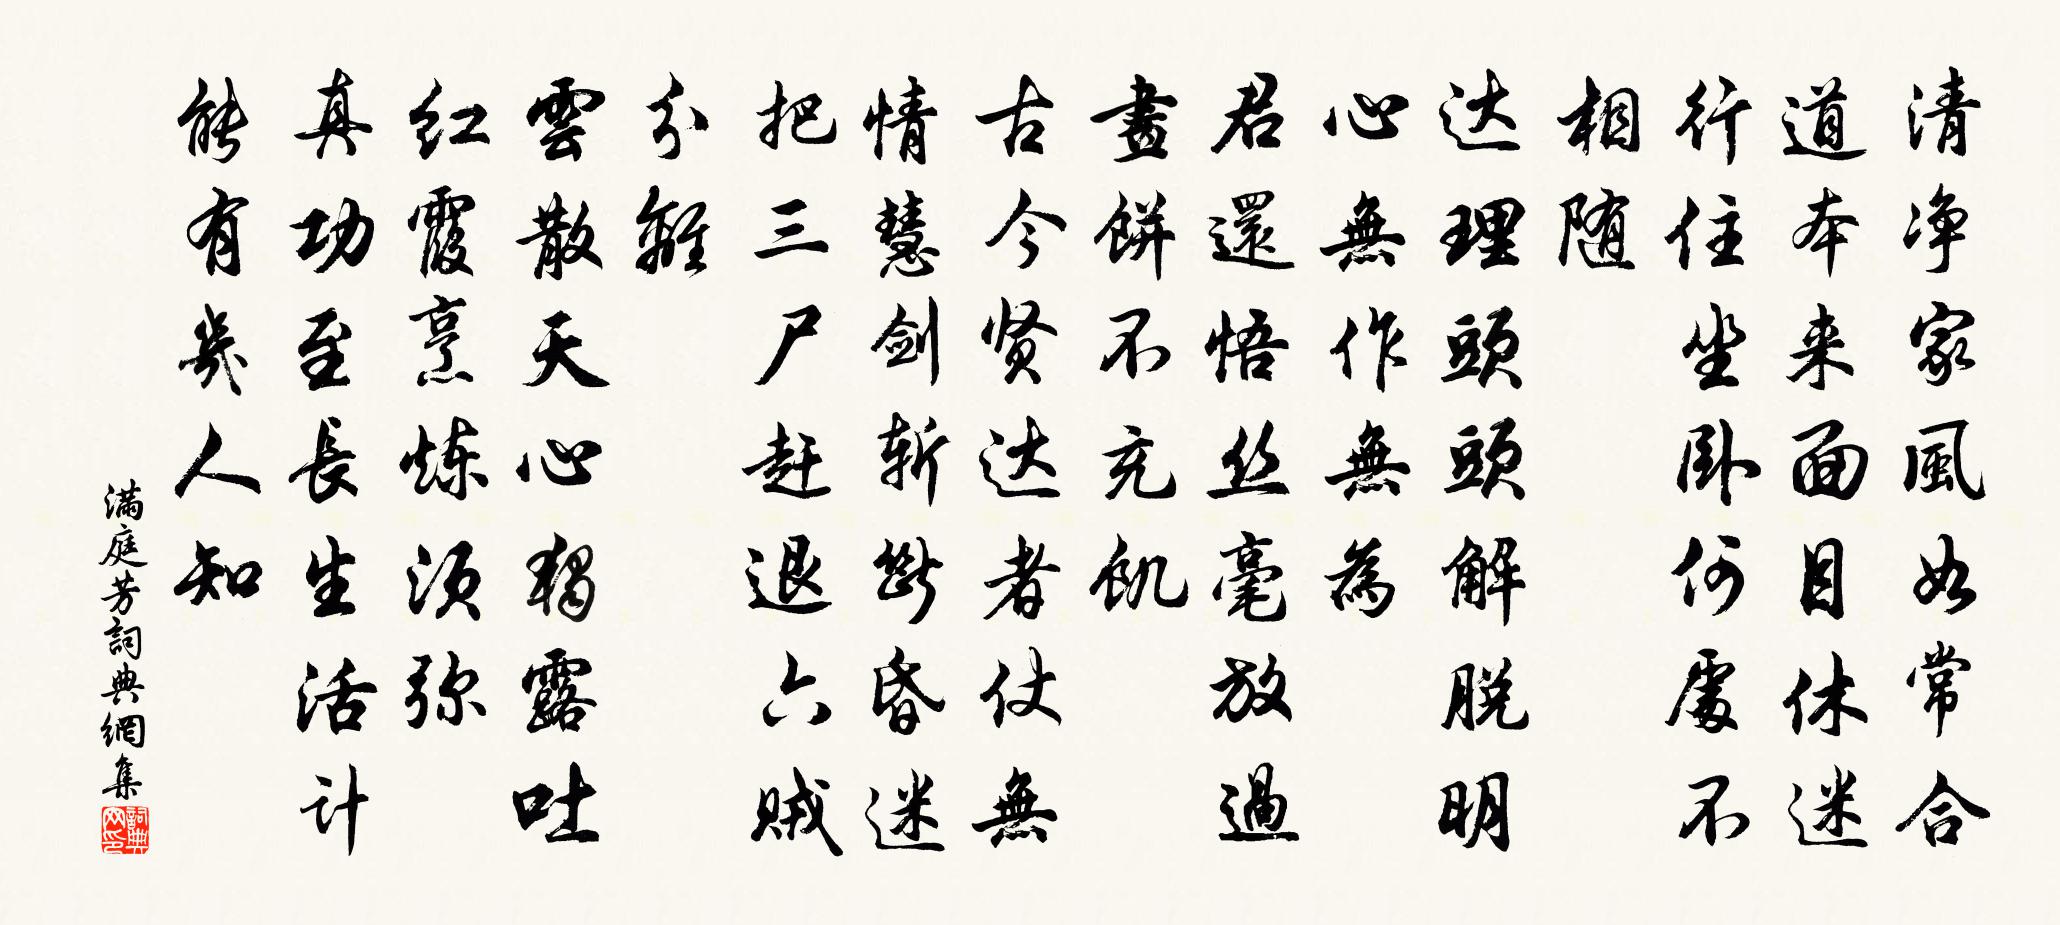 清净家風如常合
道本来面目休迷
行住坐卧何處不
相随
达理頭頭解脱明
心無作無為
君還悟丝毫放過
畫餅不充飢
古今贤达者仗無
情慧剑斩斷昏迷
把三尸赶退六贼
分離
雲散天心独露吐
红霞烹炼须弥
真功至長生活计
能有幾人知
滿庭芳詞典網集
詞典网印